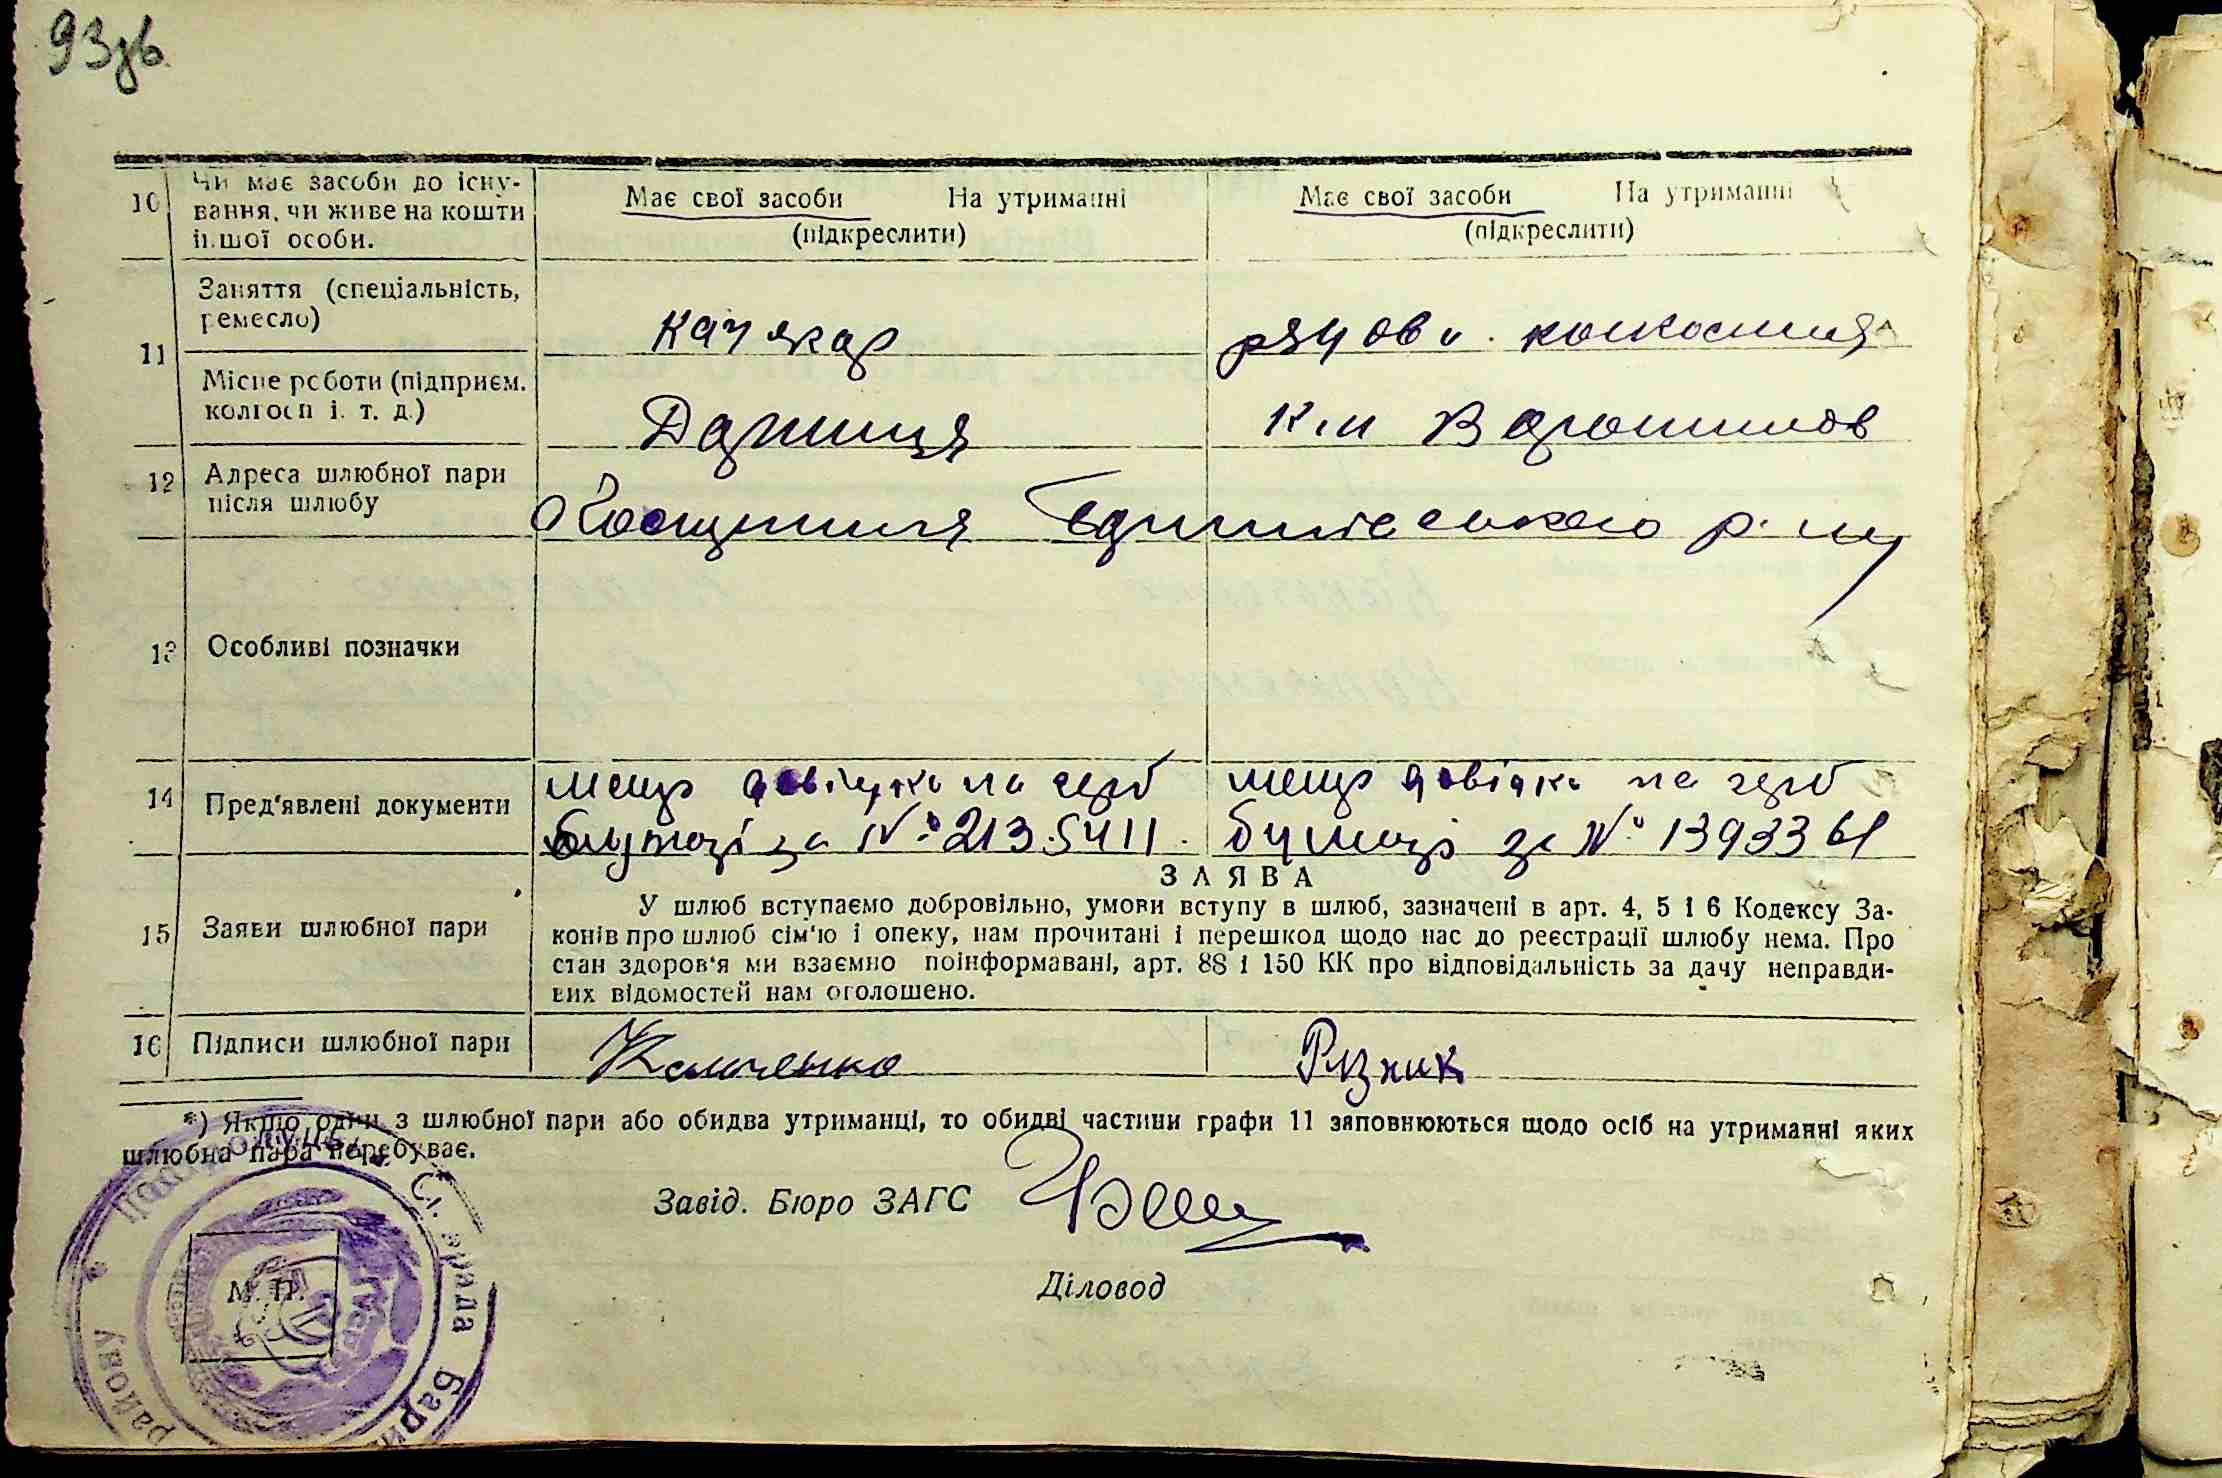 93зв
10
Чи має засоби до існу-
вання, чи живе на кошти
іншої особи.
Має свої засоби На утриманні
(підкреслити)
Має свої засоби На утриманні
(підкреслити)
11
Заняття (спеціальність,
ремесло)
кочегар
рядови
Місце роботи (підприєм.
колгосп і. т. д.)
Дарниця
к-п Ворошилов
12
Адреса шлюбної пари
після шлюбу
Баришівського р-ну
13
Особливі позначки
14
Пред'явлені документи
довідка на герб
за № 2135411.
довідка на герб
бумазі за № 1393361
15
Заяви шлюбної пари
ЗАЯВА
У шлюб вступаємо добровільно, умови вступу в шлюб, зазначені в арт. 4, 5 і 6 Кодексу За-
конів про шлюб сім'ю і опеку, нам прочитані і перешкод щодо нас до реєстрації шлюбу нема. Про
стан здоров'я ми взаємно поінформавані, арт. 88 і 150 КК про відповідальність за дачу неправди-
вих відомостей нам оголошено.
16
Підписи шлюбної пари
Різник
*) Якщо один з шлюбної пари або обидва утриманці, то обидві частини графи 11 заповнюються щодо осіб на утриманні яких
шлюбна пара перебуває.
Завід. Бюро ЗАГС
Діловод
М. П.
Сі. рада Бари
району